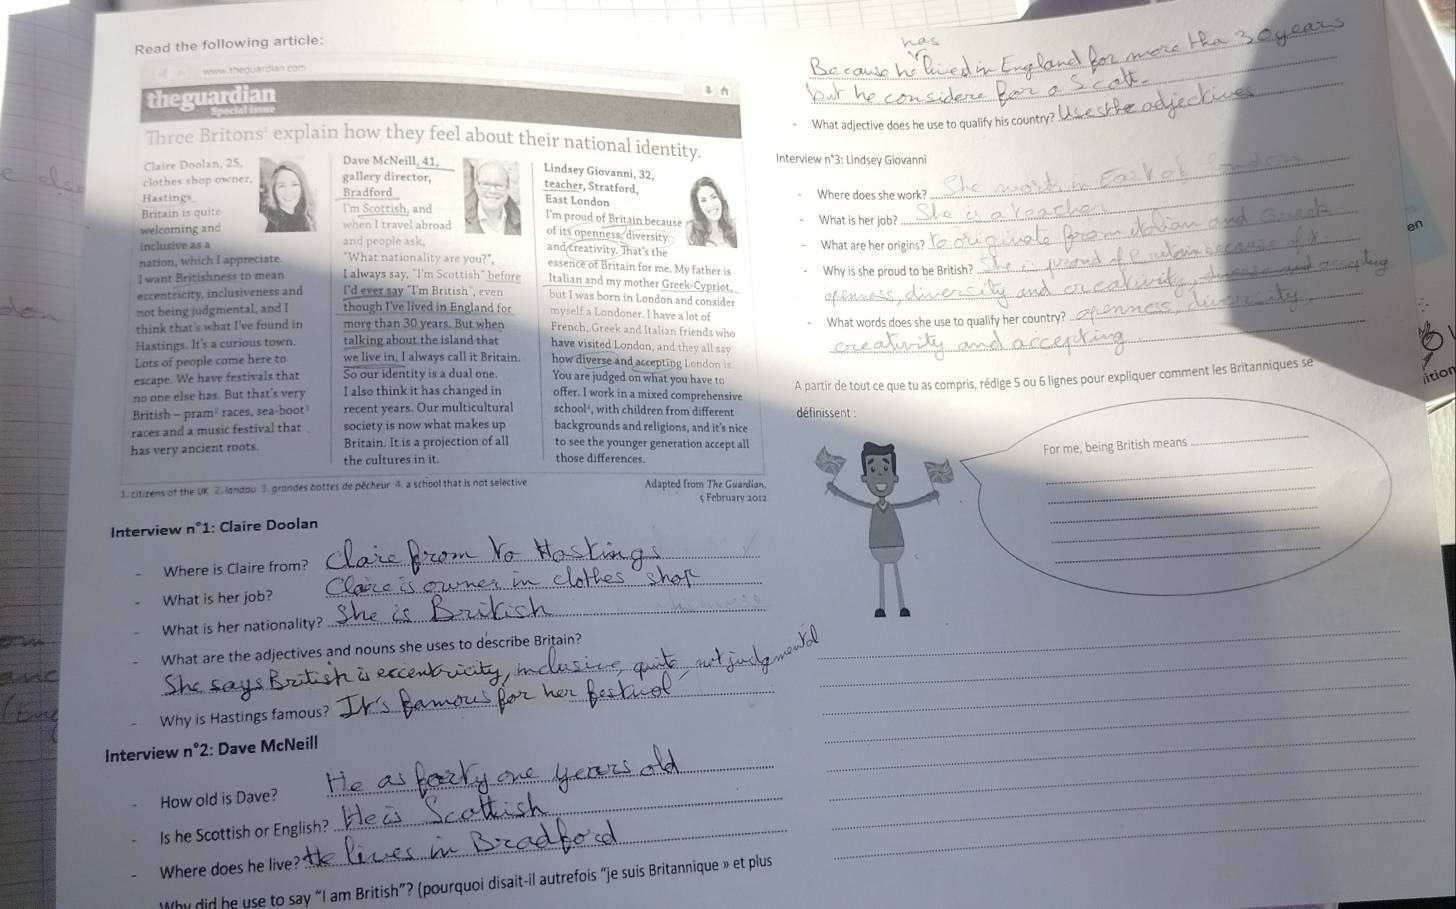 Read the following article:
www.theguardian.com
theguardian
Special issue
Three Britons¹ explain how they feel about their national identity.
Claire Doolan, 25,
clothes shop owner,
Hastings
Britain is quite
welcoming and
inclusive as a
nation, which I appreciate.
I want Britishness to mean
eccentricity, inclusiveness and
not being judgmental, and I
think that's what I've found in
Hastings. It's a curious town.
Lots of people come here to
escape. We have festivals that
no one else has. But that's very
British – pram² races, sea-boot³
races and a music festival that
has very ancient roots.
Dave McNeill, 41,
gallery director,
Bradford
I'm Scottish, and
when I travel abroad
and people ask,
"What nationality are you?",
I always say, "I'm Scottish" before
I'd ever say "I'm British", even
though I've lived in England for
more than 30 years. But when
talking about the island that
we live in, I always call it Britain.
So our identity is a dual one.
I also think it has changed in
recent years. Our multicultural
society is now what makes up
Britain. It is a projection of all
the cultures in it.
Lindsey Giovanni, 32,
teacher, Stratford,
East London
I'm proud of Britain because
of its openness, diversity
and creativity. That's the
essence of Britain for me. My father is
Italian and my mother Greek-Cypriot,
but I was born in London and consider
myself a Londoner. I have a lot of
French, Greek and Italian friends who
have visited London, and they all say
how diverse and accepting London is.
You are judged on what you have to
offer. I work in a mixed comprehensive
school⁴, with children from different
backgrounds and religions, and it's nice
to see the younger generation accept all
those differences.
1. citizens of the UK 2. landau 3. grandes bottes de pêcheur 4. a school that is not selective
Adapted from The Guardian,
5 February 2012
Interview n°1: Claire Doolan
- Where is Claire from? Claire from to Hastings
- What is her job? Claire is owner in clothes shop
- What is her nationality? She is British
- What are the adjectives and nouns she uses to describe Britain?
She says British is eccentricity, inclusive, quite not judgmental
- Why is Hastings famous? It's famous for her festival
Interview n°2: Dave McNeill
- How old is Dave? He as forty one years old
- Is he Scottish or English? He is Scottish
- Where does he live? He lives in Bradford
Why did he use to say "I am British"? (pourquoi disait-il autrefois "je suis Britannique » et plus
has
Because he lived in England for more tha 30 years
but he considere for a Scott.
- What adjective does he use to qualify his country? Uses the adjectives
Interview n°3: Lindsey Giovanni
- Where does she work? She work in East of
- What is her job? She is a teacher
- What are her origins? to originate from italian and Greek
- Why is she proud to be British? She is proud of Britain because of it
openness, diversity and creativity, diverse and accepting
- What words does she use to qualify her country? openness, diversity,
creativity and accepting
A partir de tout ce que tu as compris, rédige 5 ou 6 lignes pour expliquer comment les Britanniques se
définissent :
For me, being British means
en
ition